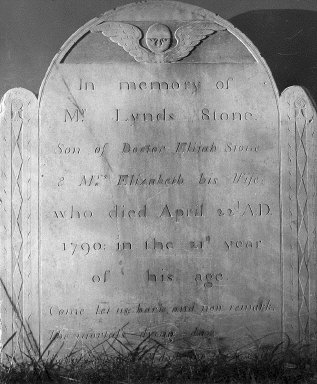 In memory of
Mr Lynds Stone,
Son of Doctor Elijah Stone
& Mrs Elizabeth his Wife;
who died April 22d AD.
1790: in the 21st year
of his age.
Come let us hark and now remark,
The mortals dying